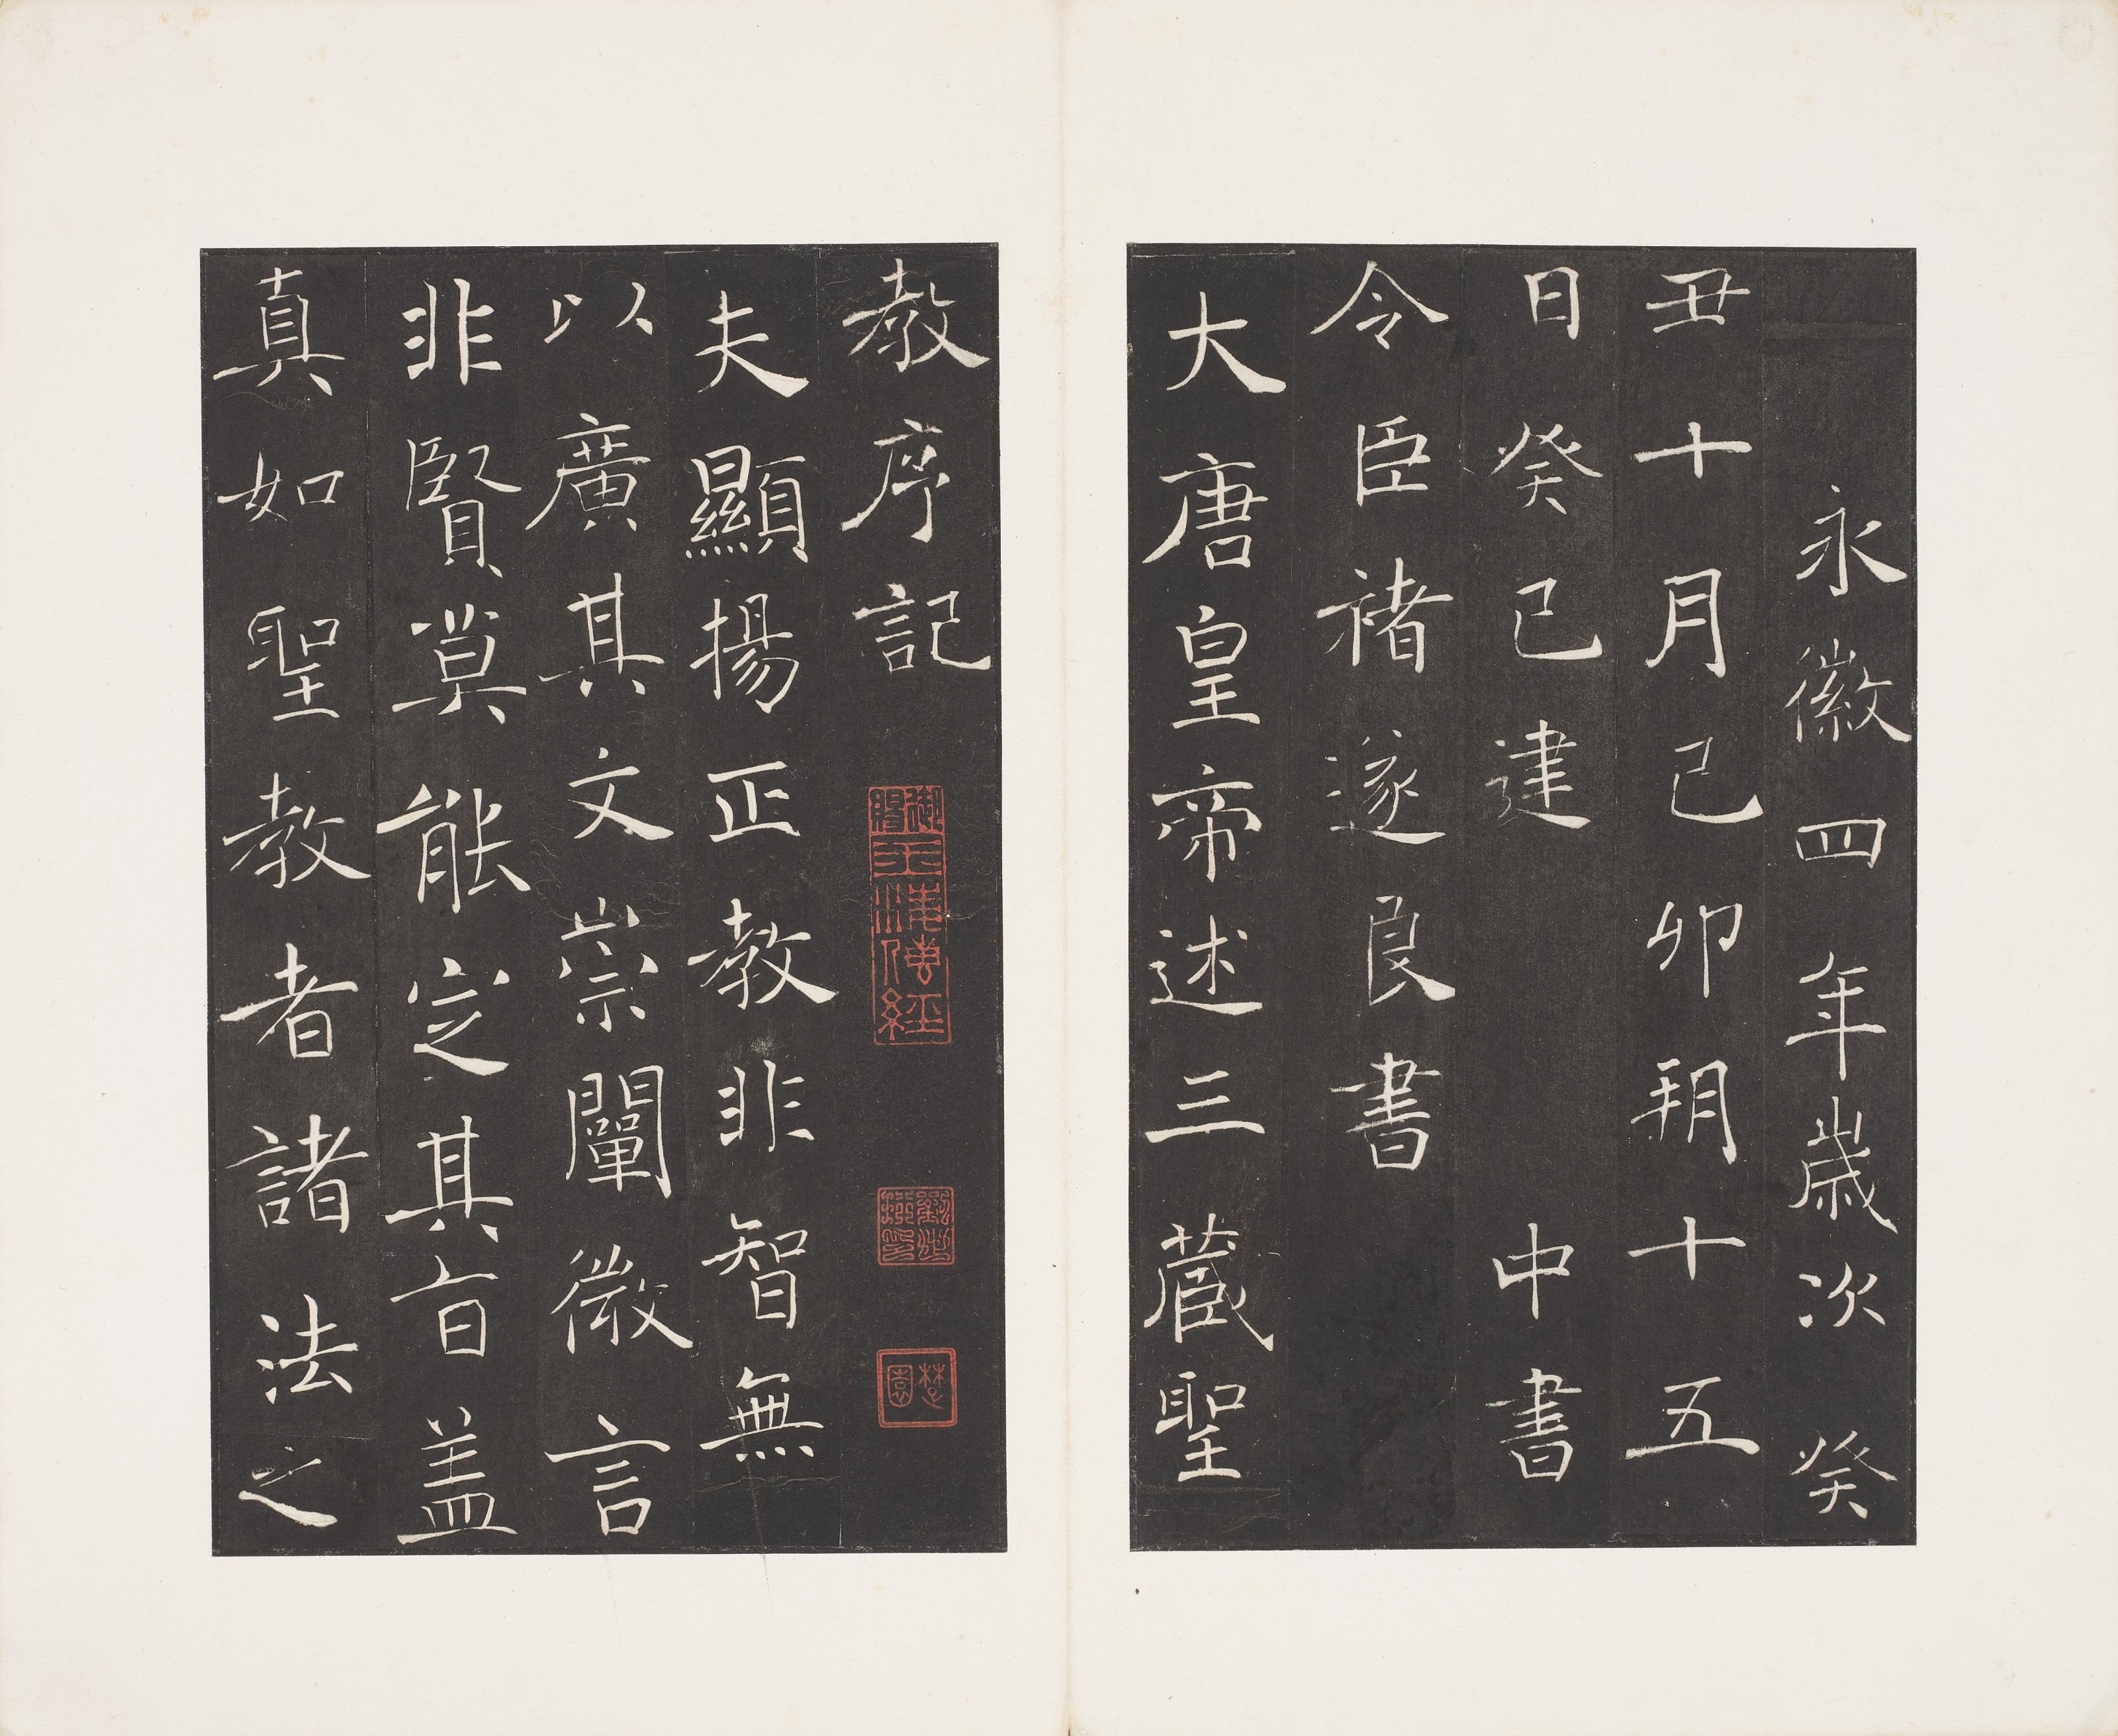 永徽四年歲次癸
丑十月己卯朔十五
日癸巳建 中書
令臣褚遂良書
大唐皇帝述三藏聖
教序記
夫顯揚正教非智無
以廣其文崇闡微言
非賢莫能定其旨蓋
真如聖教者諸法之